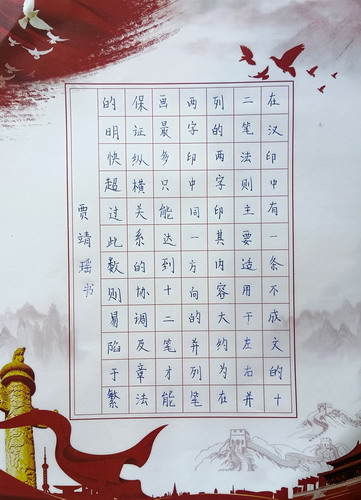 在汉印中有一条不成文的十
二笔法则主要适用于左右并
列的两字印其内容大约为在
两字印中同一方向的并列笔
画最多只能达到十二笔才能
保证纵横关系的协调及章法
的明快超过此数则易陷于繁
贾靖瑶书